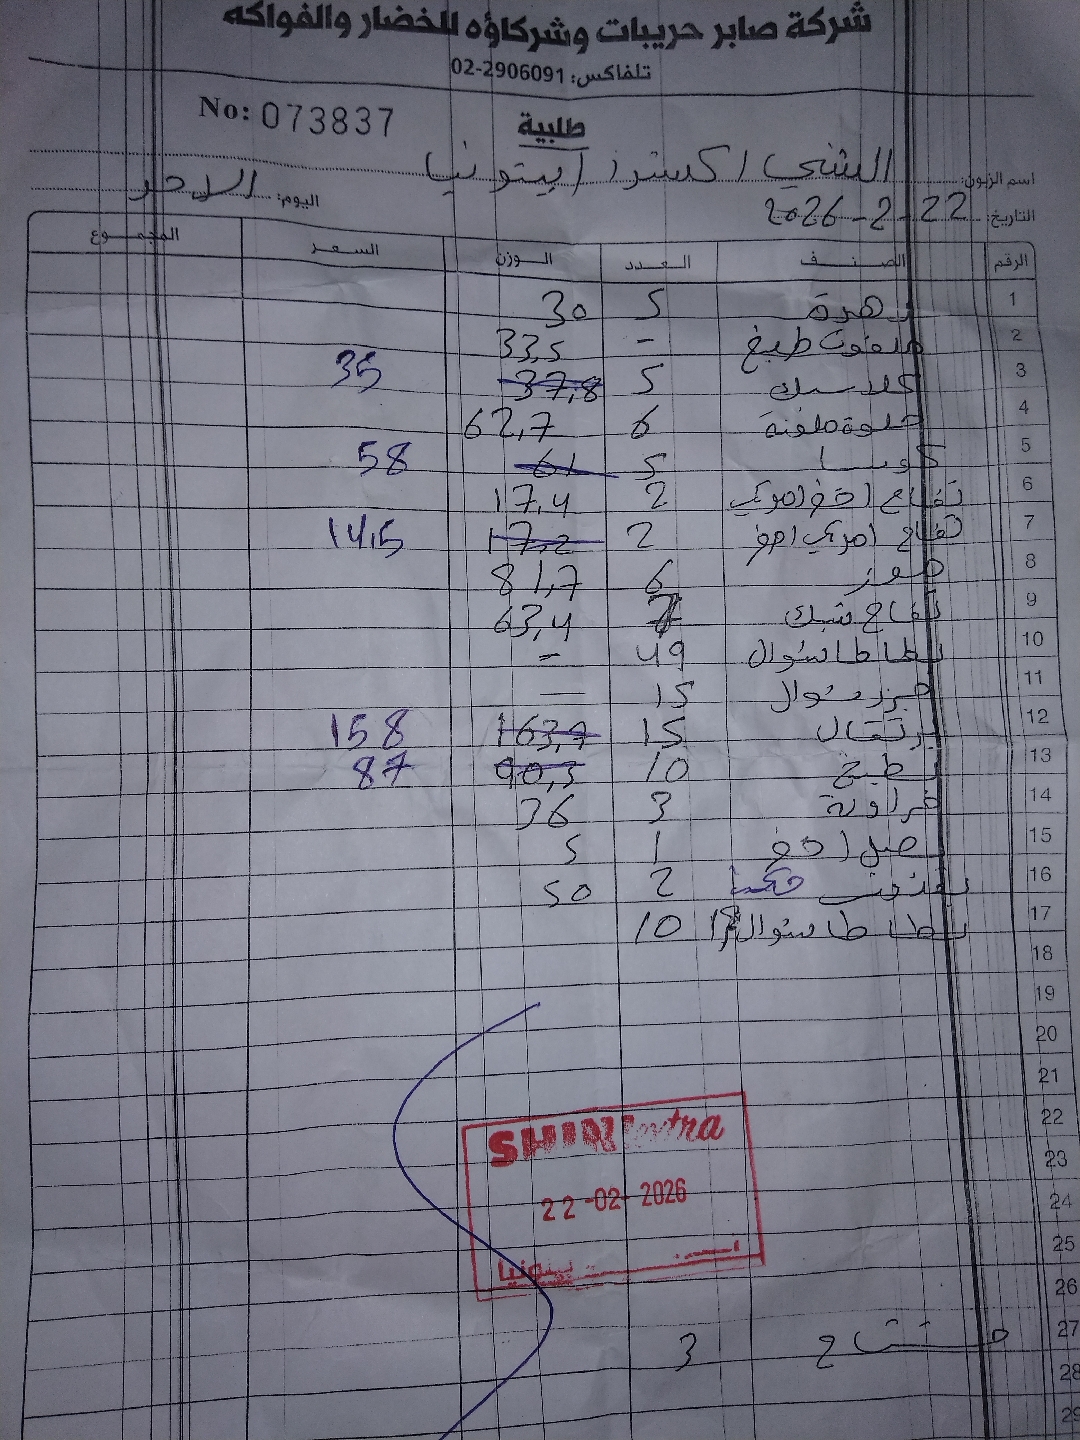 شركة صابر حريبات وشركاؤه للخضار والفواكه
تلفاكس: 02-2906091
No: 073837
طلبية
اسم الزبون: الشني اكسترا / بيتونيا
التاريخ: 22-2-2026 اليوم: الاحد
الرقم الصنف العدد الوزن السعر المجموع
1 زهرة 5 30
2 ملفوف طبيخ - 33,5
3 كلاسيك 5 37,8 35
4 حلوة ملونة 6 62,7
5 كوسا 5 61 58
6 تفاح امريكي 2 17,4
7 تفاح امريكي 2 17,2 14,5
8 موز 6 81,7
9 تفاح 7 63,4
10 بطاطا شوال 49 -
11 جزر شوال 15 -
12 برتقال 15 163,9 158
13 بطيخ 10 90,3 87
14 فراولة 3 36
15 بصل 1 5
16 2 50
17 بطاطا شوال 10
18
19
20
21
22
23
24
25
26
27
28 3
29
SHINI extra
22-02-2026
بيتونيا